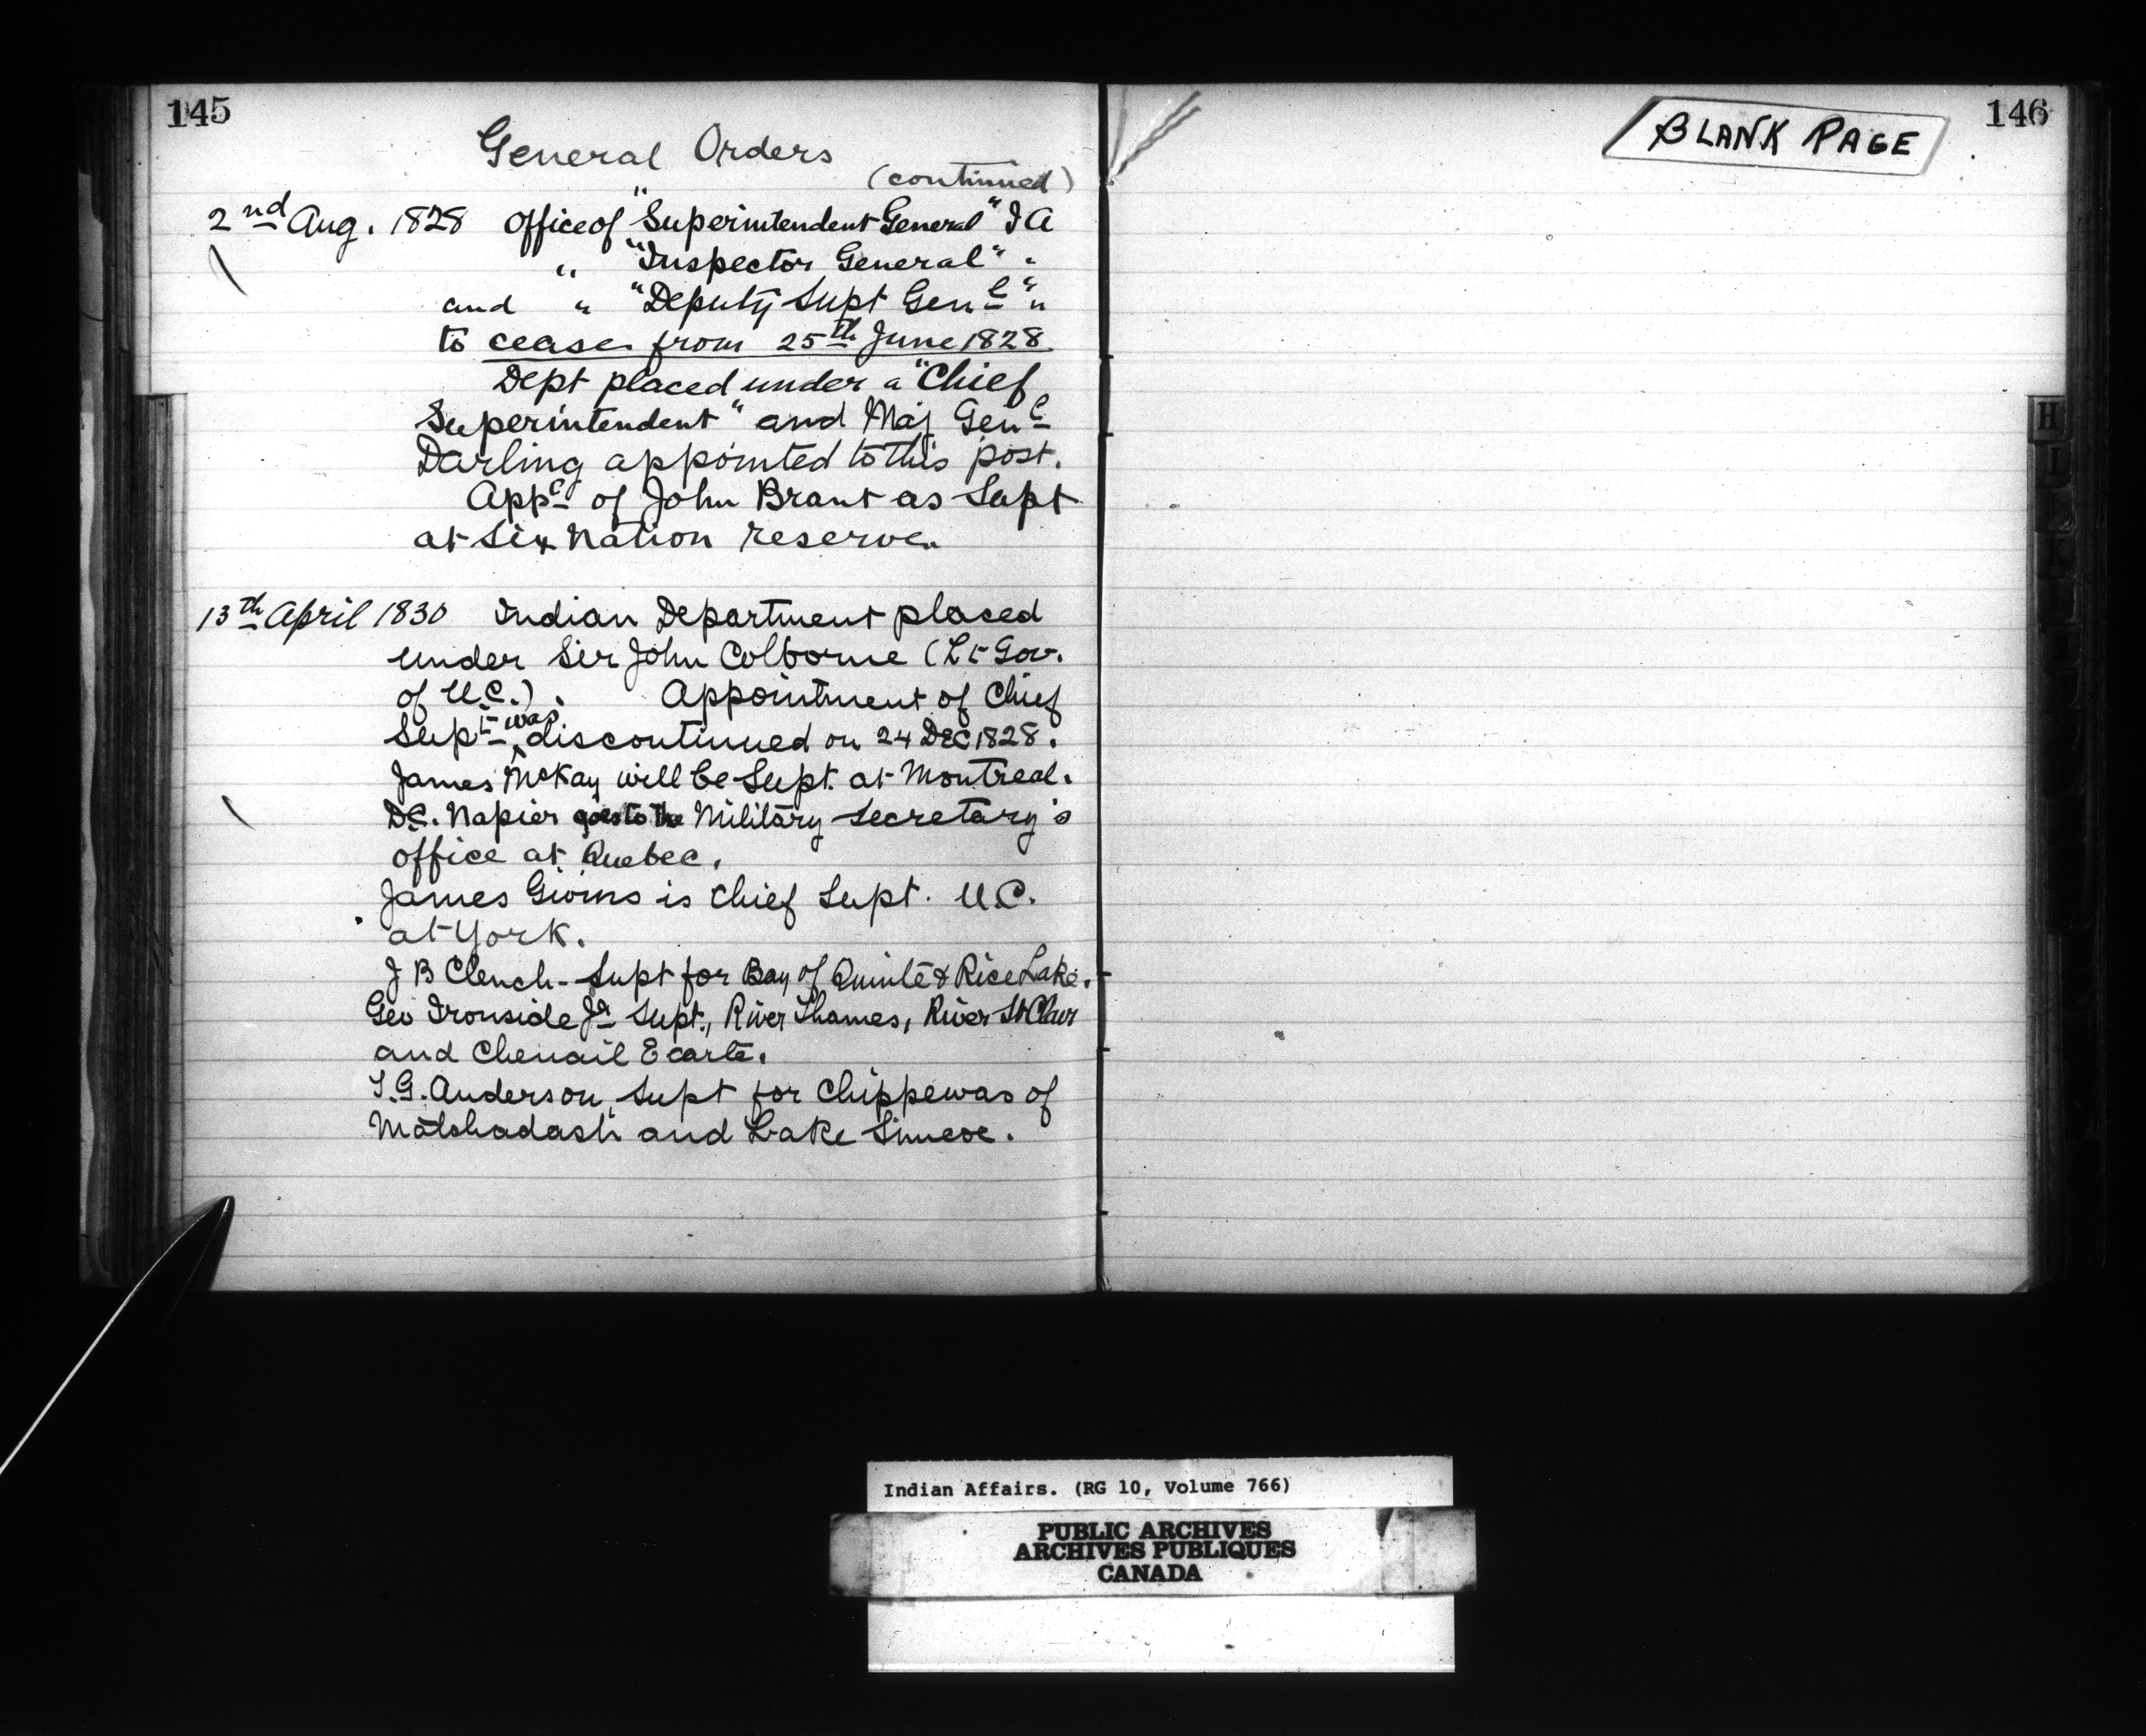 145
General Orders
(continued)
2nd Aug. 1828 Office of "Superintendent General" I A
" "Inspector General" "
and " "Deputy Supt Genl" "
to cease from 25th June 1828
Dept placed under a "Chief
Superintendent" and Maj Genl
Darling appointed to this post.
of John Brant as Supt
at Six Nation reserve.
13th April 1830 Indian Department placed
under Sir John Colborne (Lt Gov.
of U.C.). Appointment of Chief
Supt was discontinued on 24 DEC 1828.
James McKay will be Supt. at Montreal.
D.C. Napier goes to the Military Secretary's
office at Quebec.
James Givins is Chief Supt. U.C.
at York.
J B Clench - Supt for Bay of Quinté & Rice Lake.
Geo Ironside Jr Supt., River Thames, River St Clair
and Chenail Ecarté.
T.G. Anderson, Supt for Chippewas of
Matchadash and Lake Simcoe.
146
BLANK PAGE
H
I
J
K
Indian Affairs. (RG 10, Volume 766)
PUBLIC ARCHIVES
ARCHIVES PUBLIQUES
CANADA